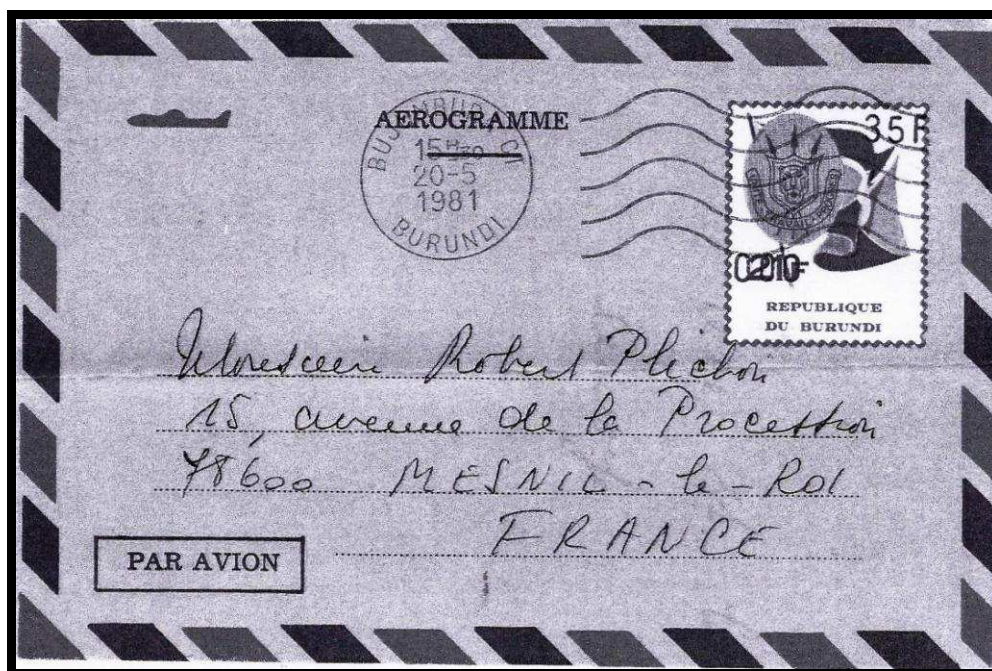 AEROGRAMME
BUJUMBURA CI
15H30
20-5
1981
BURUNDI
35F
REPUBLIQUE
DU BURUNDI
Monsieur Robert Plichon
15, avenue de la Procession
78600 MESNIL-le-Roi
FRANCE
PAR AVION